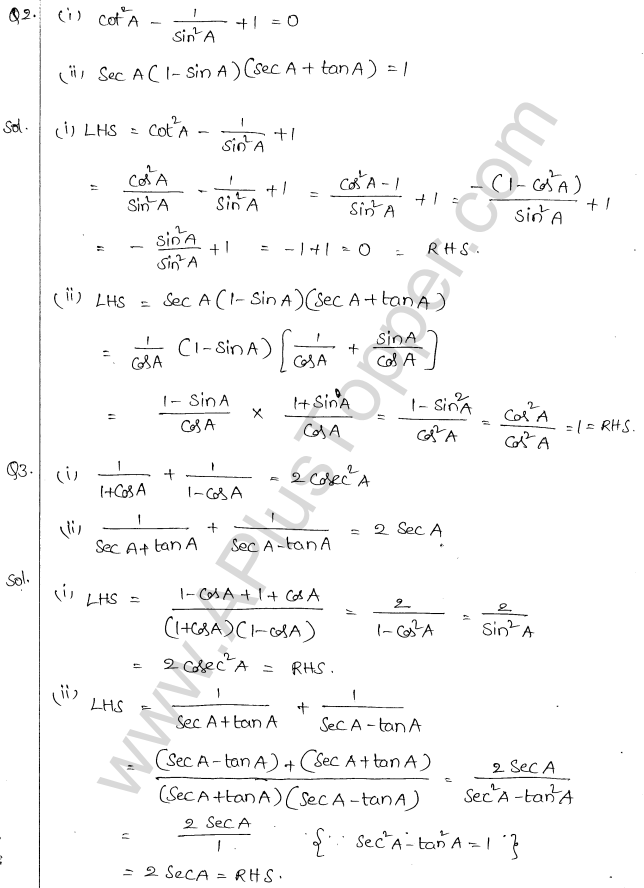 Q2. (i) cot²A - 1/Sin²A + 1 = 0
(ii) Sec A (1 - Sin A) (Sec A + tan A) = 1
Sol. (i) LHS = Cot²A - 1/Sin²A + 1
= Cos²A/Sin²A - 1/Sin²A + 1 = Cos²A - 1/Sin²A + 1 = -(1 - Cos²A)/Sin²A + 1
= - Sin²A/Sin²A + 1 = -1 + 1 = 0 = RHS.
(ii) LHS = Sec A (1 - Sin A) (Sec A + tan A)
= 1/Cos A (1 - Sin A) [1/Cos A + Sin A/Cos A]
= 1 - Sin A/Cos A × 1 + Sin A/Cos A = 1 - Sin²A/Cos²A = Cos²A/Cos²A = 1 = RHS.
Q3. (i) 1/1+Cos A + 1/1-Cos A = 2 Cosec²A
(ii) 1/Sec A + tan A + 1/Sec A - tan A = 2 Sec A.
Sol. (i) LHS = 1 - Cos A + 1 + Cos A/(1+Cos A)(1-Cos A) = 2/1 - Cos²A = 2/Sin²A
= 2 Cosec²A = RHS.
(ii) LHS = 1/Sec A + tan A + 1/Sec A - tan A
= (Sec A - tan A) + (Sec A + tan A)/(Sec A + tan A)(Sec A - tan A) = 2 Sec A/Sec²A - tan²A
= 2 Sec A/1 {∵ Sec²A - tan²A = 1}
= 2 Sec A = RHS.
www.APlusTopper.com